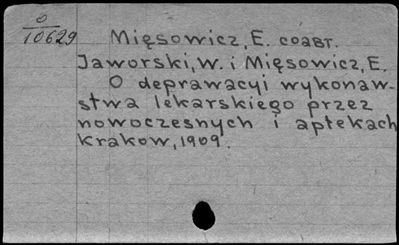 O
10629
Mięsowicz, E. соавт.
Jaworski, W. i Mięsowicz, E.
O deprawacyi wykonaw-
stwa lekarskiego przez
nowoczesnych i aptekach
Krakow, 1909.